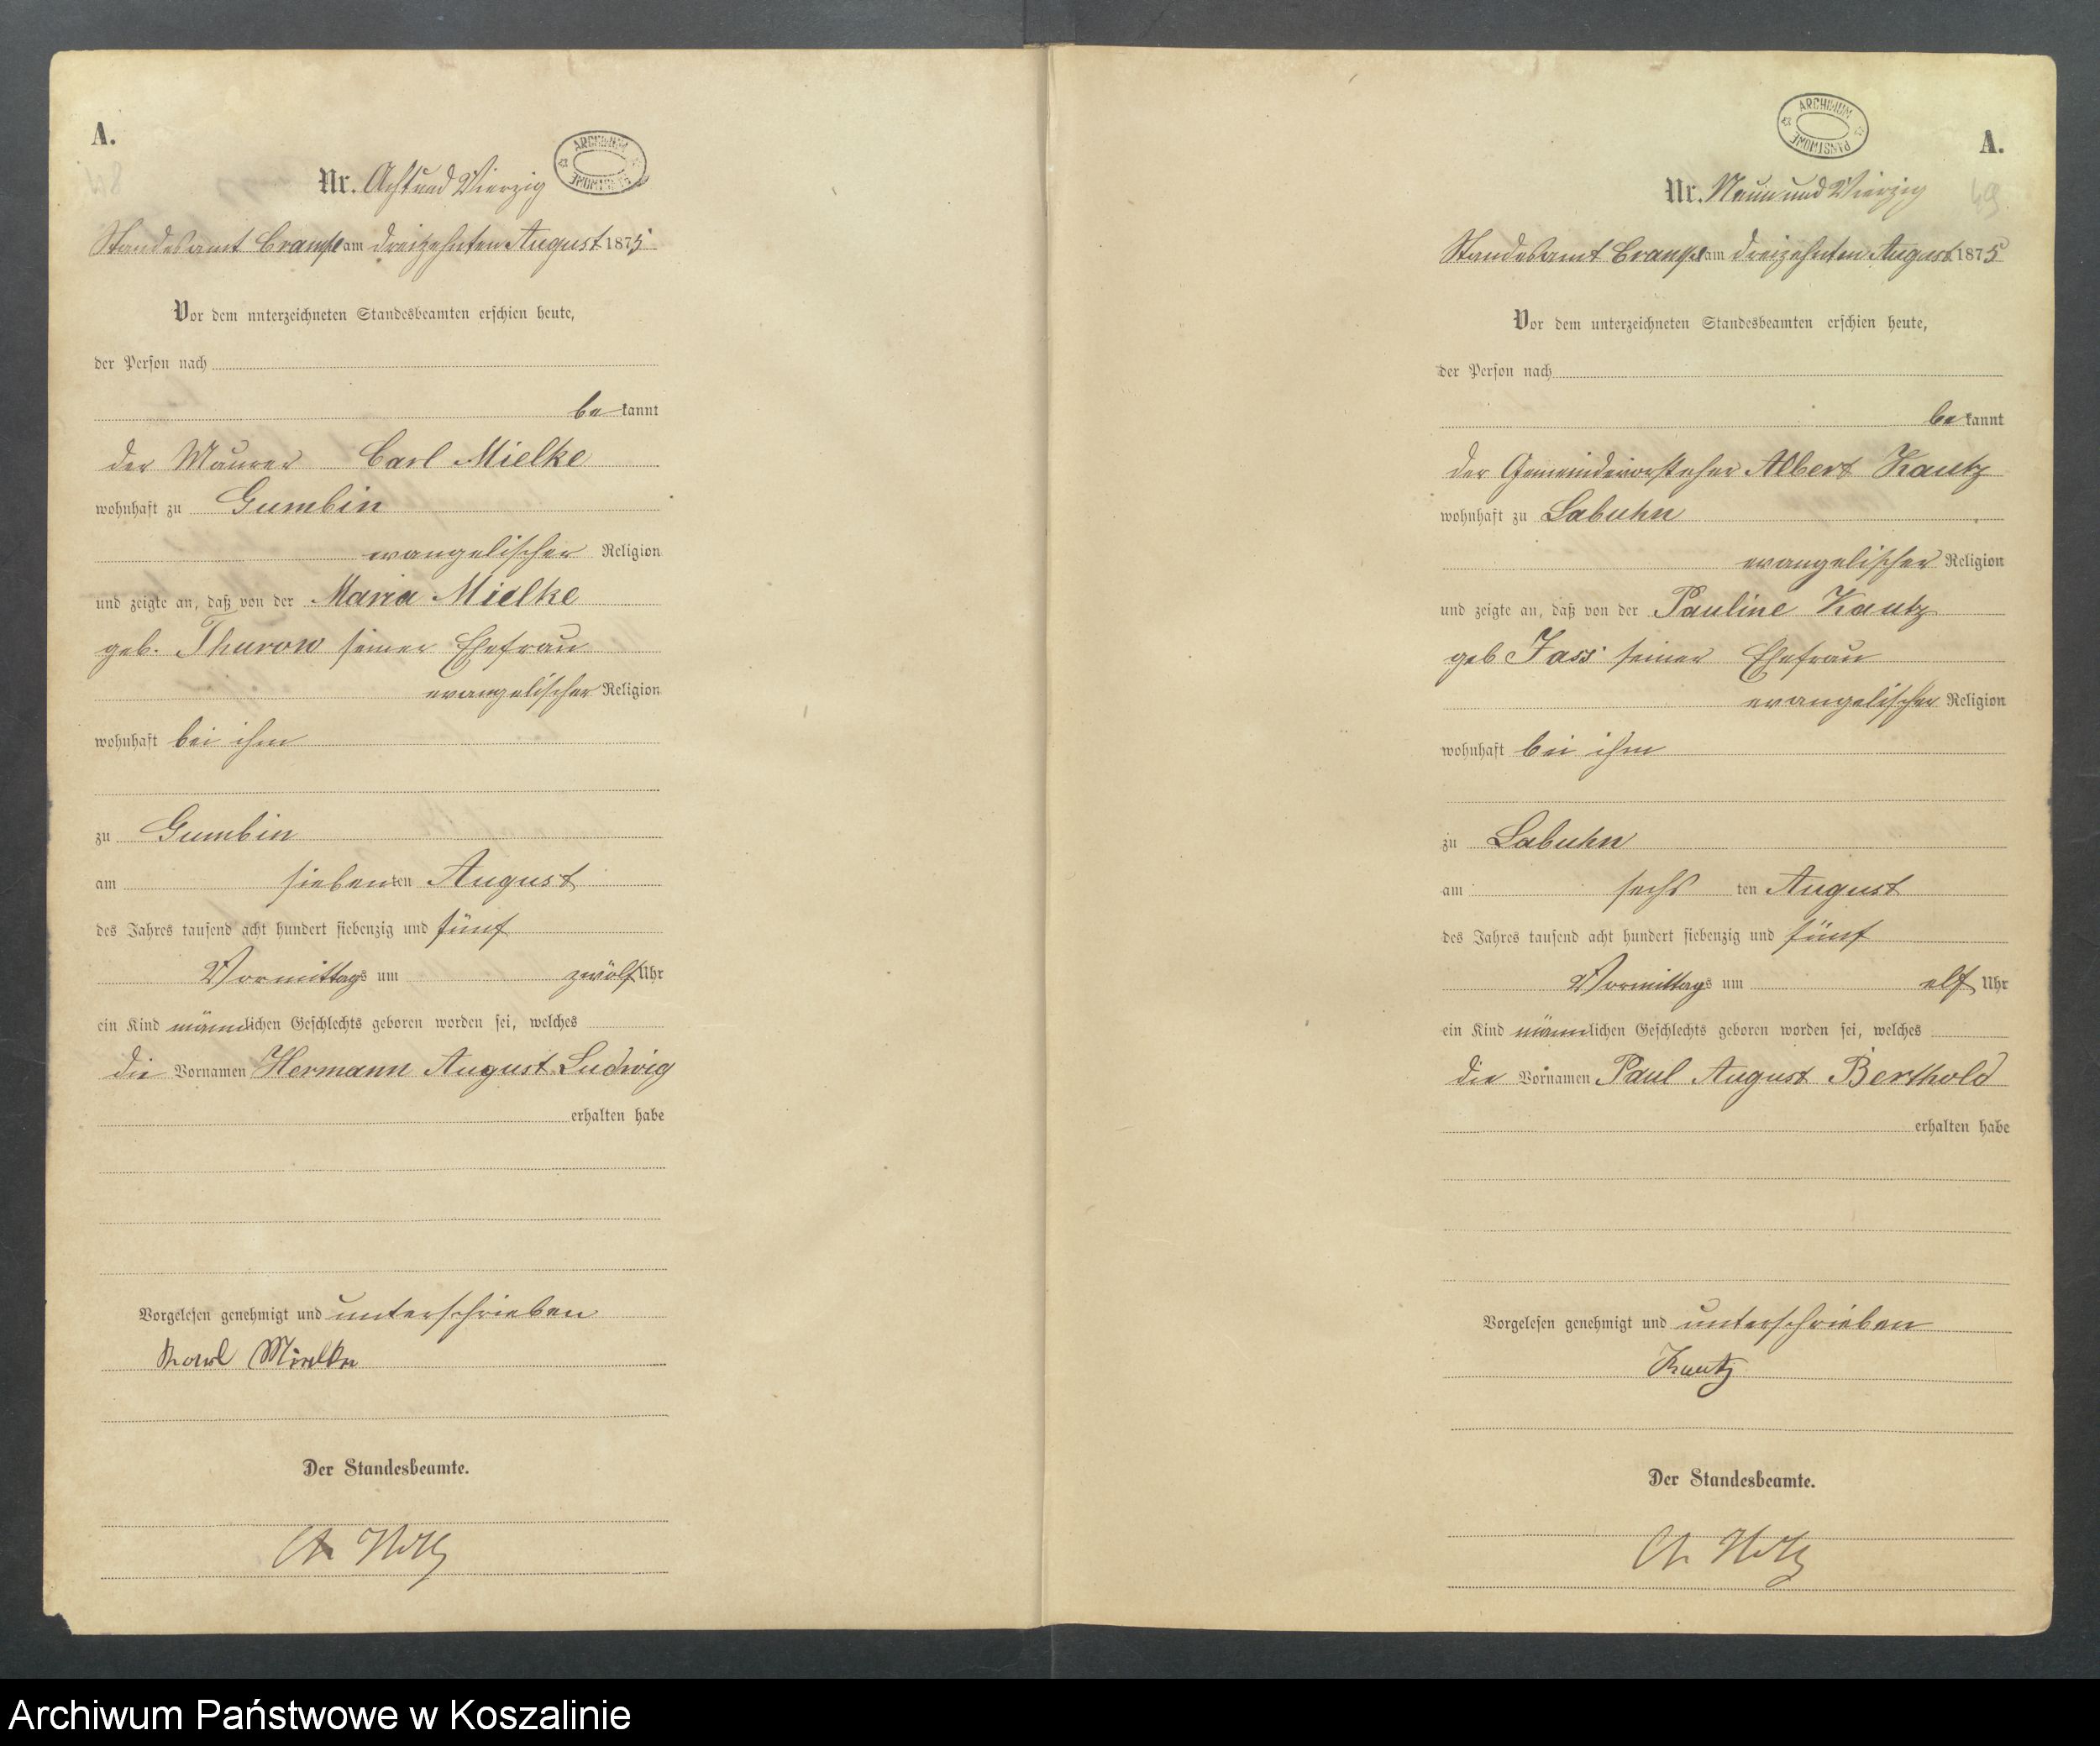 A.
Nr. Acht und Vierzig
ARCHIWUM PAŃSTWOWE
Standesamt Crampe am dreizehnten August 1875
Vor dem unterzeichneten Standesbeamten erschien heute,
der Person nach
be kannt
der Maurer Carl Mielke
wohnhaft zu Gumbin
evangelischer Religion
und zeigte an, daß von der Maria Mielke
geb. Thurow seiner Ehefrau
evangelischer Religion
wohnhaft bei ihm
zu Gumbin
am siebenten August
des Jahres tausend acht hundert siebenzig und fünf
Vormittags um zwölf Uhr
ein Kind männlichen Geschlechts geboren worden sei, welches
die Vornamen Hermann August Ludwig
erhalten habe
Vorgelesen genehmigt und unterschrieben
Karl Mielke
Der Standesbeamte.
A.
ARCHIWUM PAŃSTWOWE
Nr. Neun und Vierzig
49
Standesamt Crampe am dreizehnten August 1875
Vor dem unterzeichneten Standesbeamten erschien heute,
der Person nach
be kannt
der Gemeindevorsteher Albert Kautz
wohnhaft zu Labuhn
evangelischer Religion
und zeigte an, daß von der Pauline Kautz
geb Jass seiner Ehefrau
evangelischer Religion
wohnhaft bei ihm
zu Labuhn
am sechs ten August
des Jahres tausend acht hundert siebenzig und fünf
Vormittags um elf Uhr
ein Kind männlichen Geschlechts geboren worden sei, welches
die Vornamen Paul August Berthold
erhalten habe
Vorgelesen genehmigt und unterschrieben
Kautz
Der Standesbeamte.
Archiwum Państwowe w Koszalinie